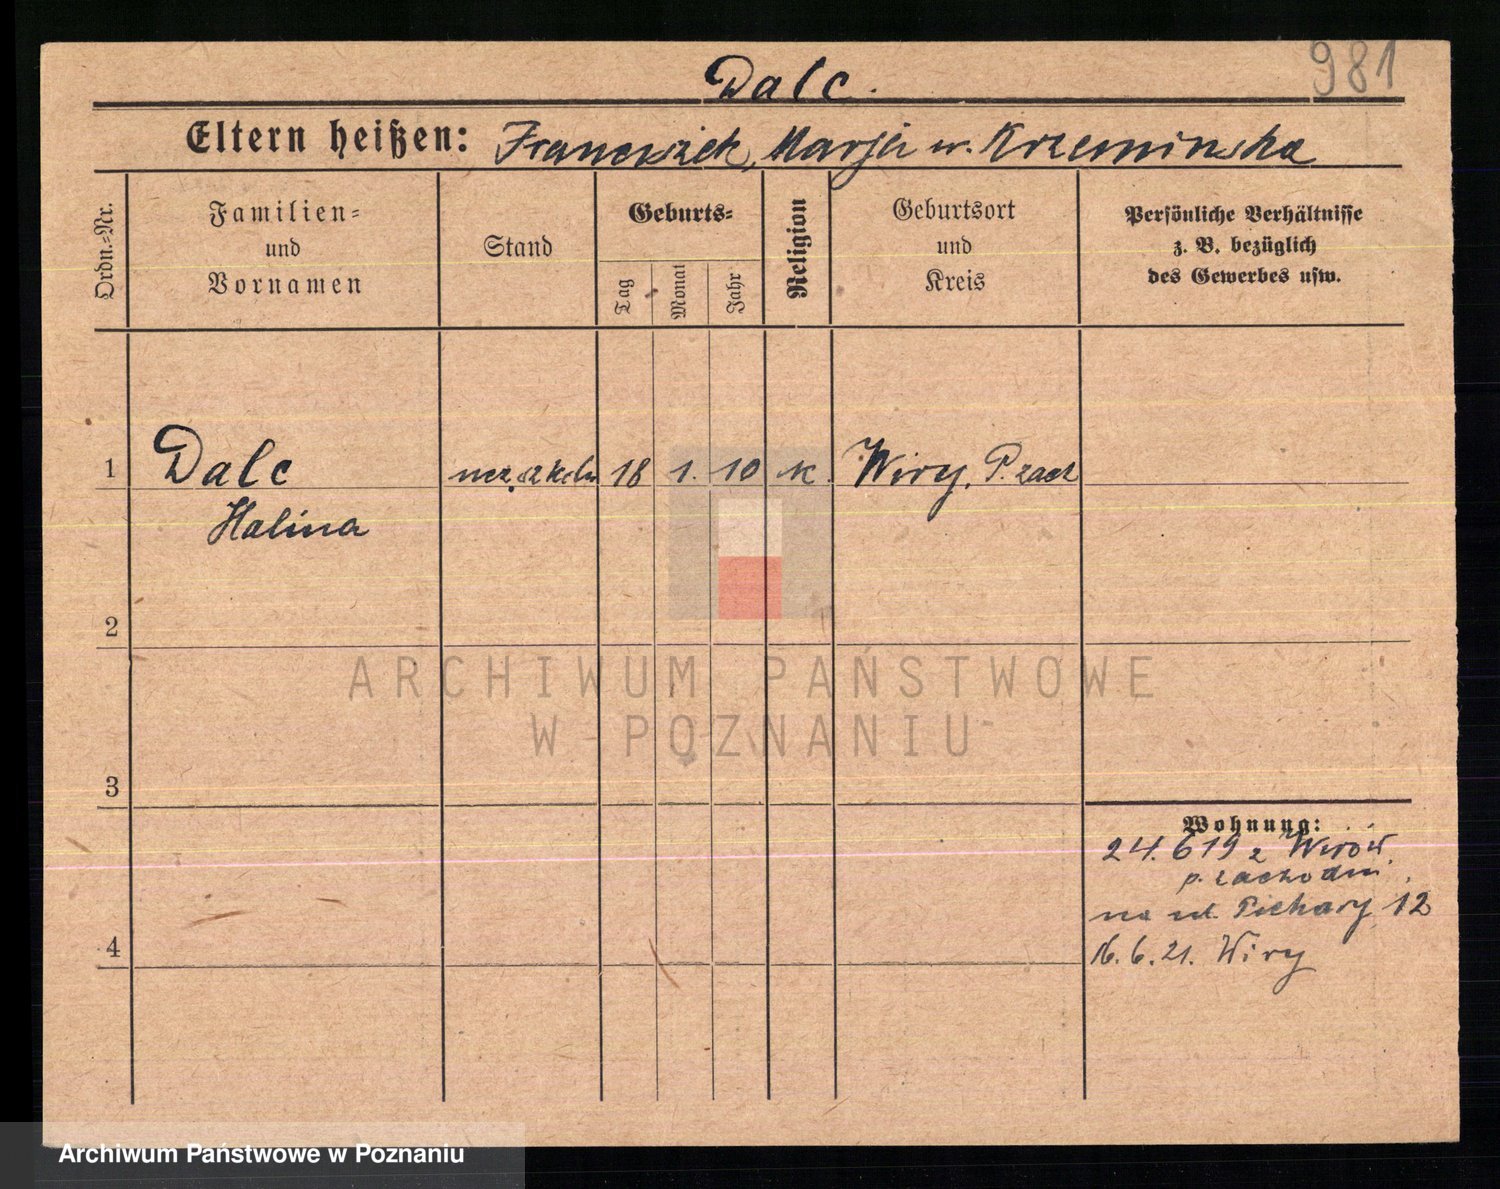 981
Dalc.
Eltern heißen: Franciszek, Marja ur. Krzeminska
Ordn.=Nr.
Familien=
und
Vornamen
Stand
Geburts=
Tag
Monat
Jahr
Religion
Geburtsort
und
Kreis
Persönliche Verhältnisse
z. B. bezüglich
des Gewerbes usw.
1 Dalc ucz. szkoln 18 1. 10 k. Wiry. P. zach
Halina
2
3
4
Wohnung:
24.6 19 z Wirów
p. zachodni
na ul. Piekary 12
16.6.21. Wiry
ARCHIWUM PAŃSTWOWE
W POZNANIU
Archiwum Państwowe w Poznaniu